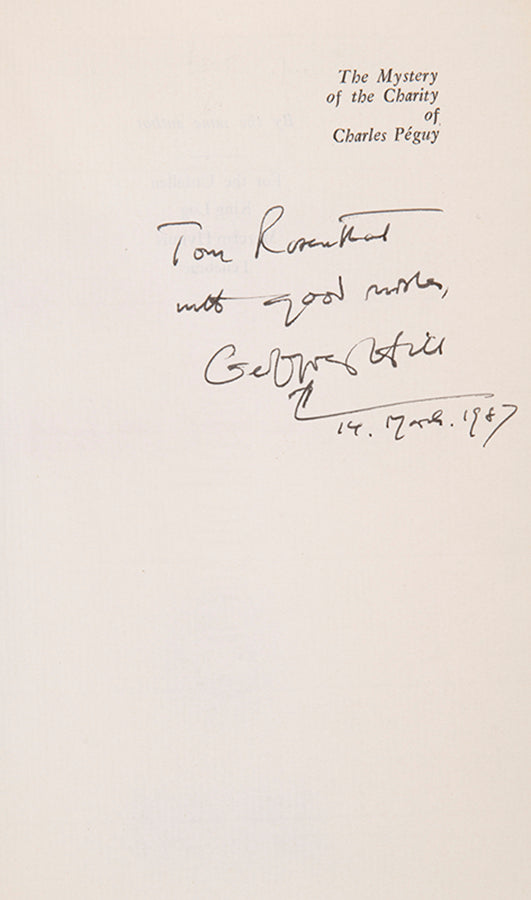 The Mystery
of the Charity
of
Charles Péguy
Tom Rosenthal
with good wishes,
Geoffrey Hill
14. March. 1987